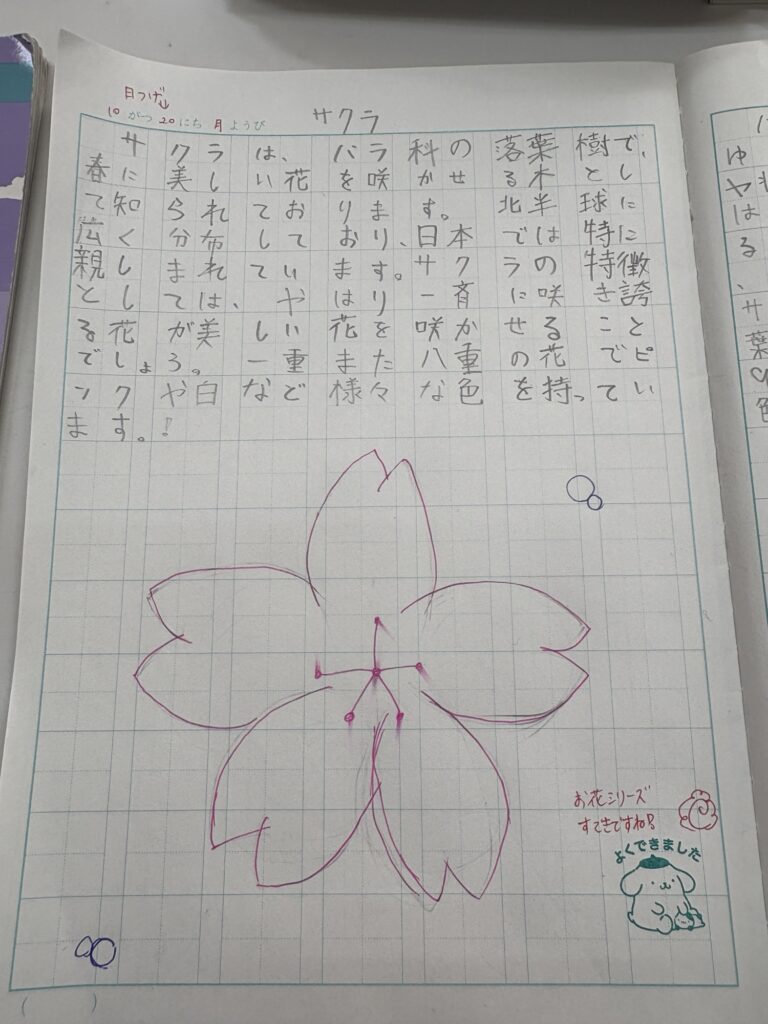 日つけ↓
10がつ20にち月ようび サクラ
サクラは、バラ科の落葉樹で、
春に美しい花を咲かせる木とし
て知られております。北半球に
広く分布しており、日本では特に
親しまれています。サクラの特徴
としては、やはり一斉に咲き誇
る花が美しい花を咲かせること
でしょう。一重また八重の花でピ
ンクや白など様々な色を持ってい
ます。!
お花シリーズ
すてきですね
よくできました